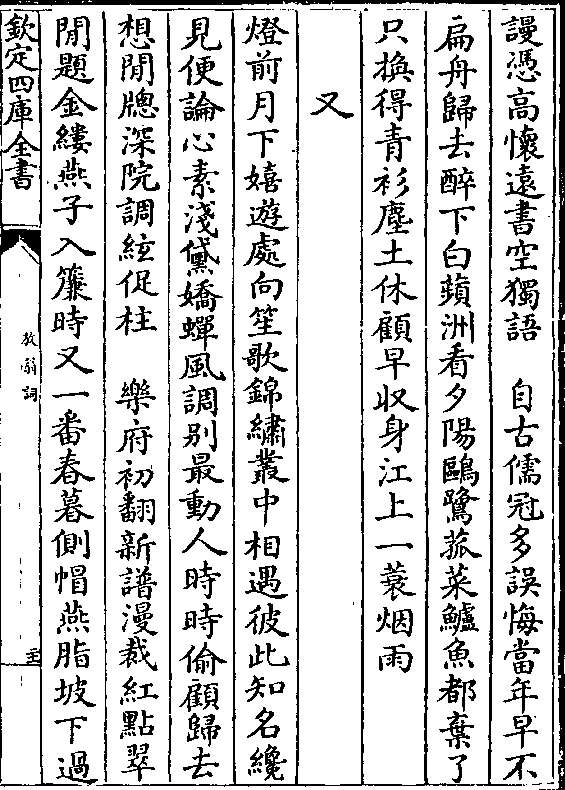 謾憑高懷遠書空獨語　自古儒冠多誤悔當年早不
扁舟歸去醉下白蘋洲看夕陽鷗鷺菰菜鱸魚都棄了
只換得青衫塵土休顧早收身江上一蓑烟雨
又
燈前月下嬉遊處向笙歌錦繡叢中相遇彼此知名纔
見便論心素淺黛嬌蟬風調别最動人時時偷顧歸去
想閒牕深院調絃促柱　樂府初翻新譜漫裁紅點翠
閒題金縷燕子入簾時又一番春暮側帽燕脂坡下過
欽定四庫全書
放翁詞